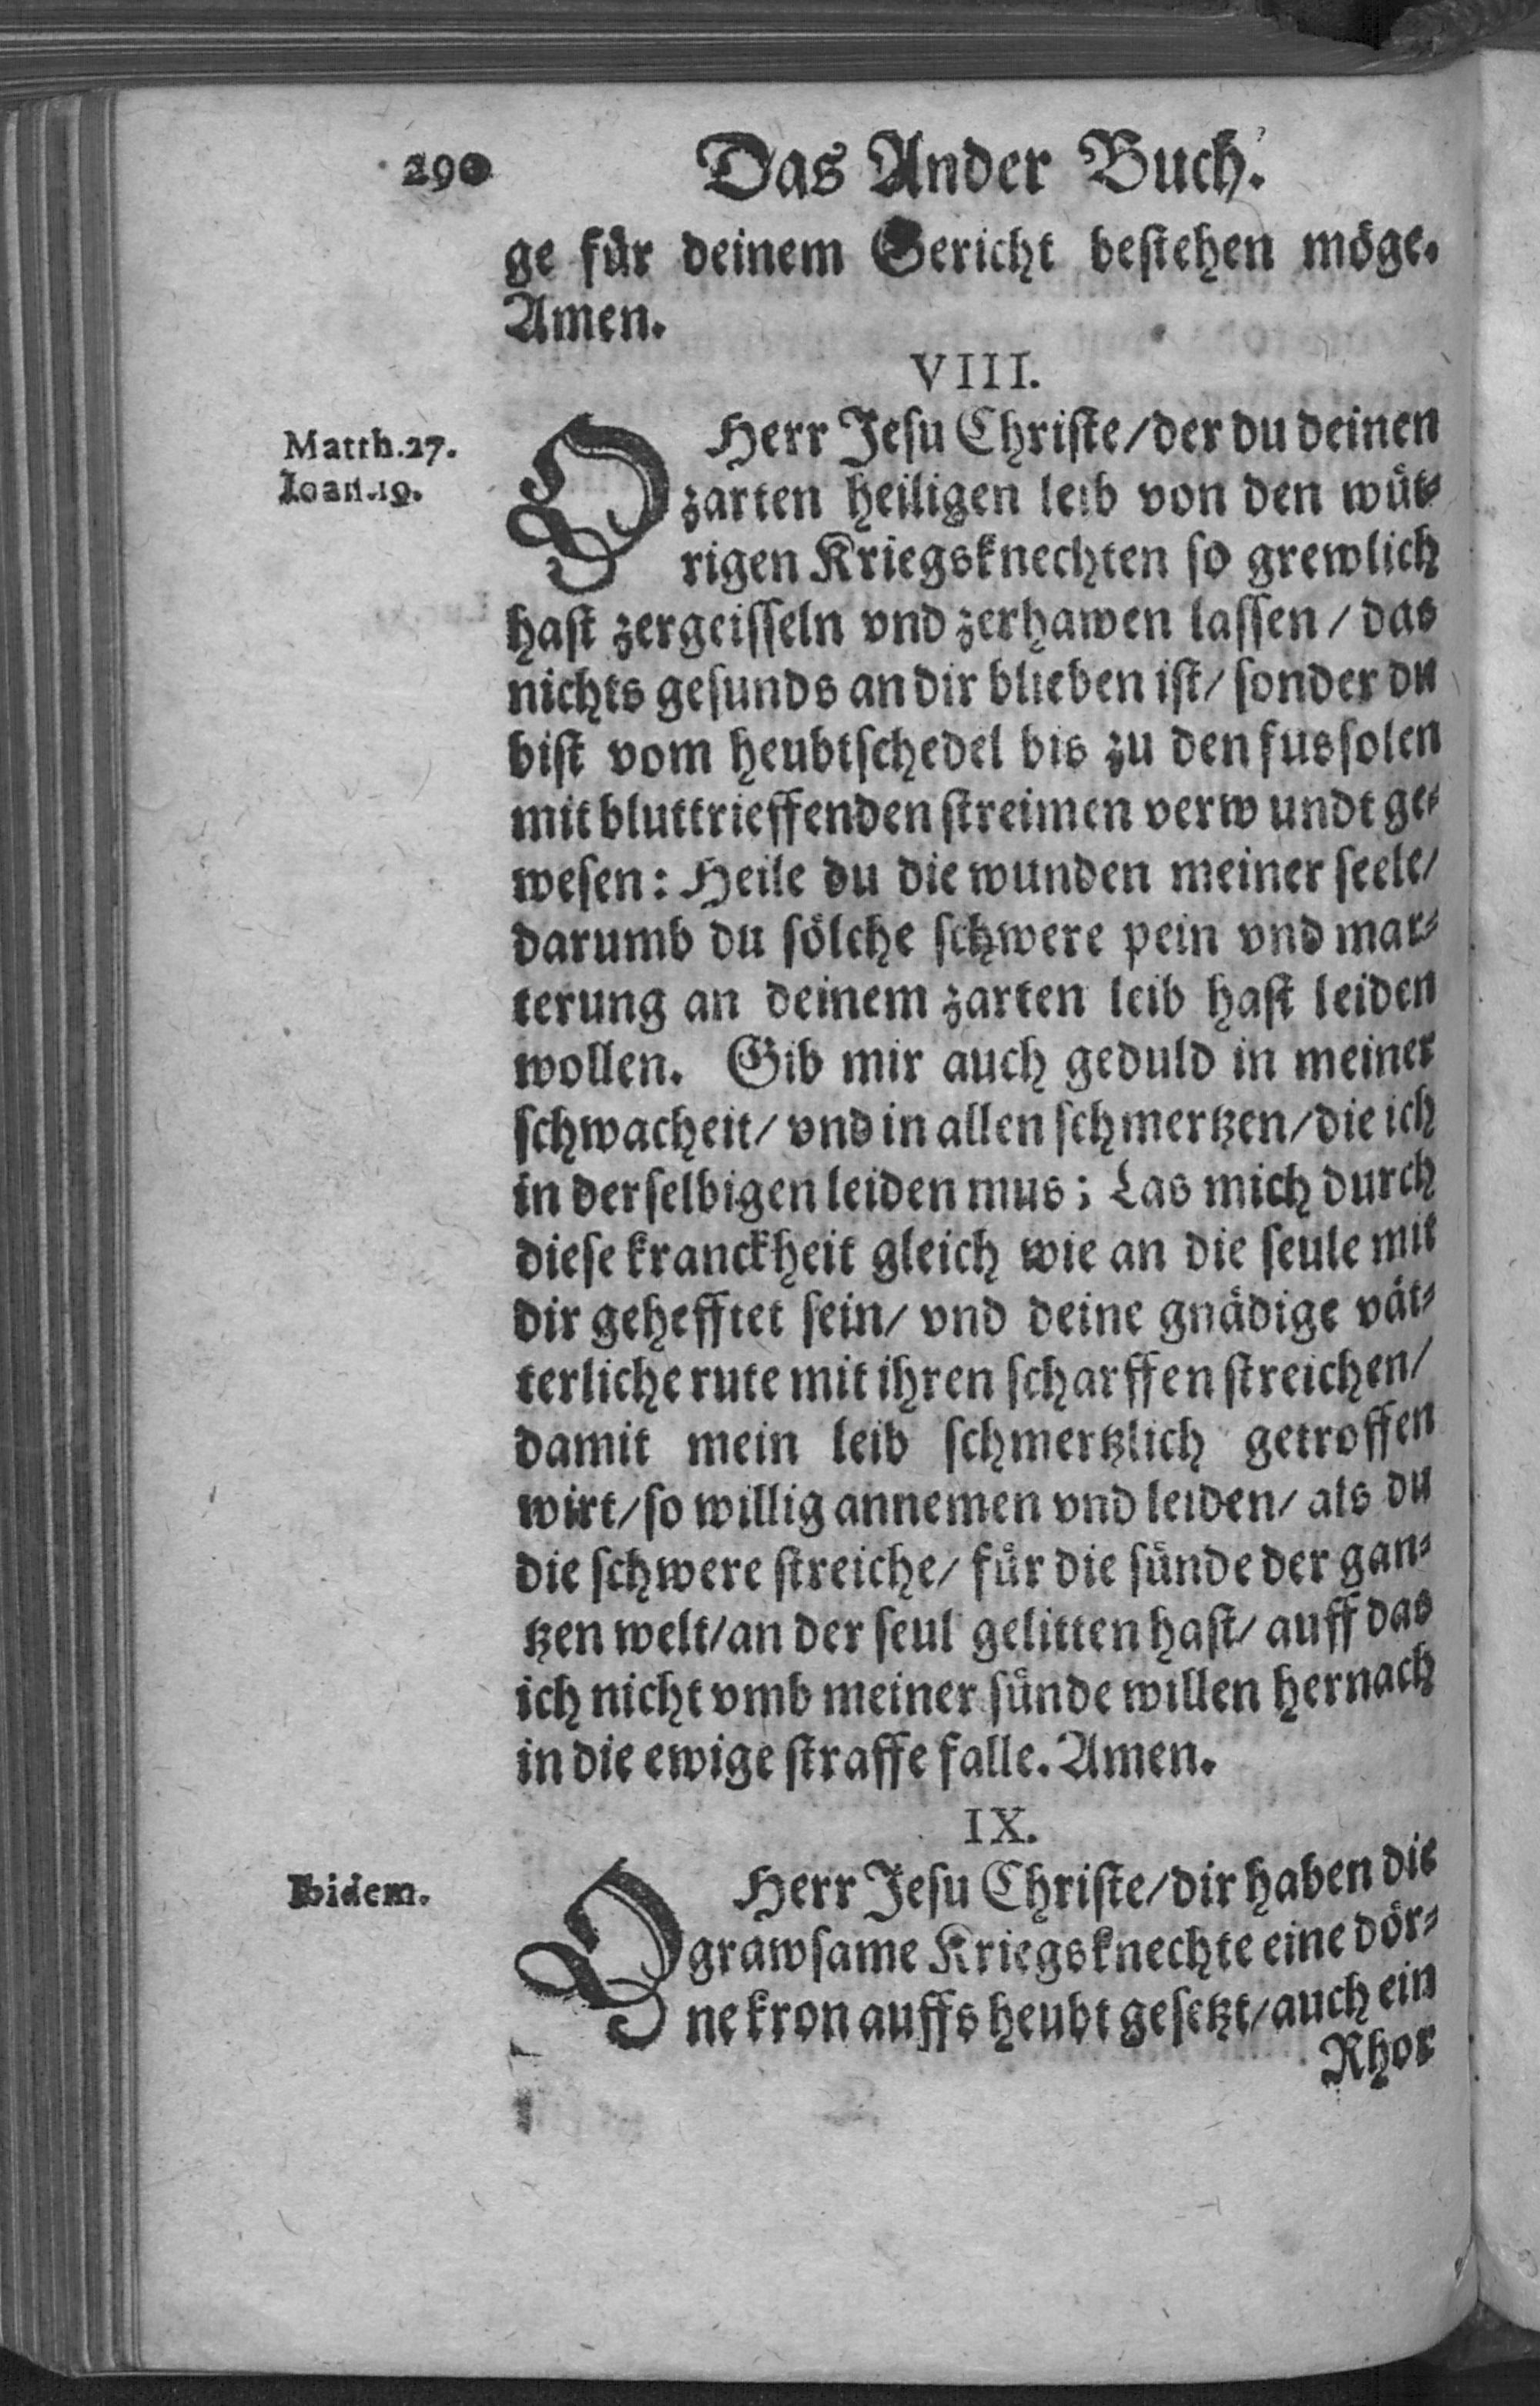 290 Das Ander Buch.
ge für deinem Gericht bestehen möge.
Amen.
VIII.
Matth.27.
Ioan.19.
O Herr Jesu Christe/der du deinen
zarten heiligen leib von den wüt-
rigen Kriegsknechten so grewlich
hast zergeisseln vnd zerhawen lassen/ das
nichts gesunds an dir blieben ist/ sonder du
bist vom heubtschedel bis zu den fussolen
mit bluttrieffenden streimen verwundt ge-
wesen: Heile du die wunden meiner seele/
darumb du sölche schwere pein vnd mar-
terung an deinem zarten leib hast leiden
wollen. Gib mir auch geduld in meiner
schwacheit/ vnd in allen schmertzen/die ich
in derselbigen leiden mus; Las mich durch
diese kranckheit gleich wie an die seule mit
dir gehefftet sein/ vnd deine gnädige vät-
terliche rute mit ihren scharffen streichen/
damit mein leib schmertzlich getroffen
wirt/so willig annemen vnd leiden/ als du
die schwere streiche/ für die sünde der gan-
tzen welt/an der seul gelitten hast/ auff das
ich nicht vmb meiner sünde willen hernach
in die ewige straffe falle. Amen.
IX.
Ibidem.
O Herr Jesu Christe/dir haben die
grawsame Kriegsknechte eine dör-
ne kron auffs heubt gesetzt/auch ein
Rhor